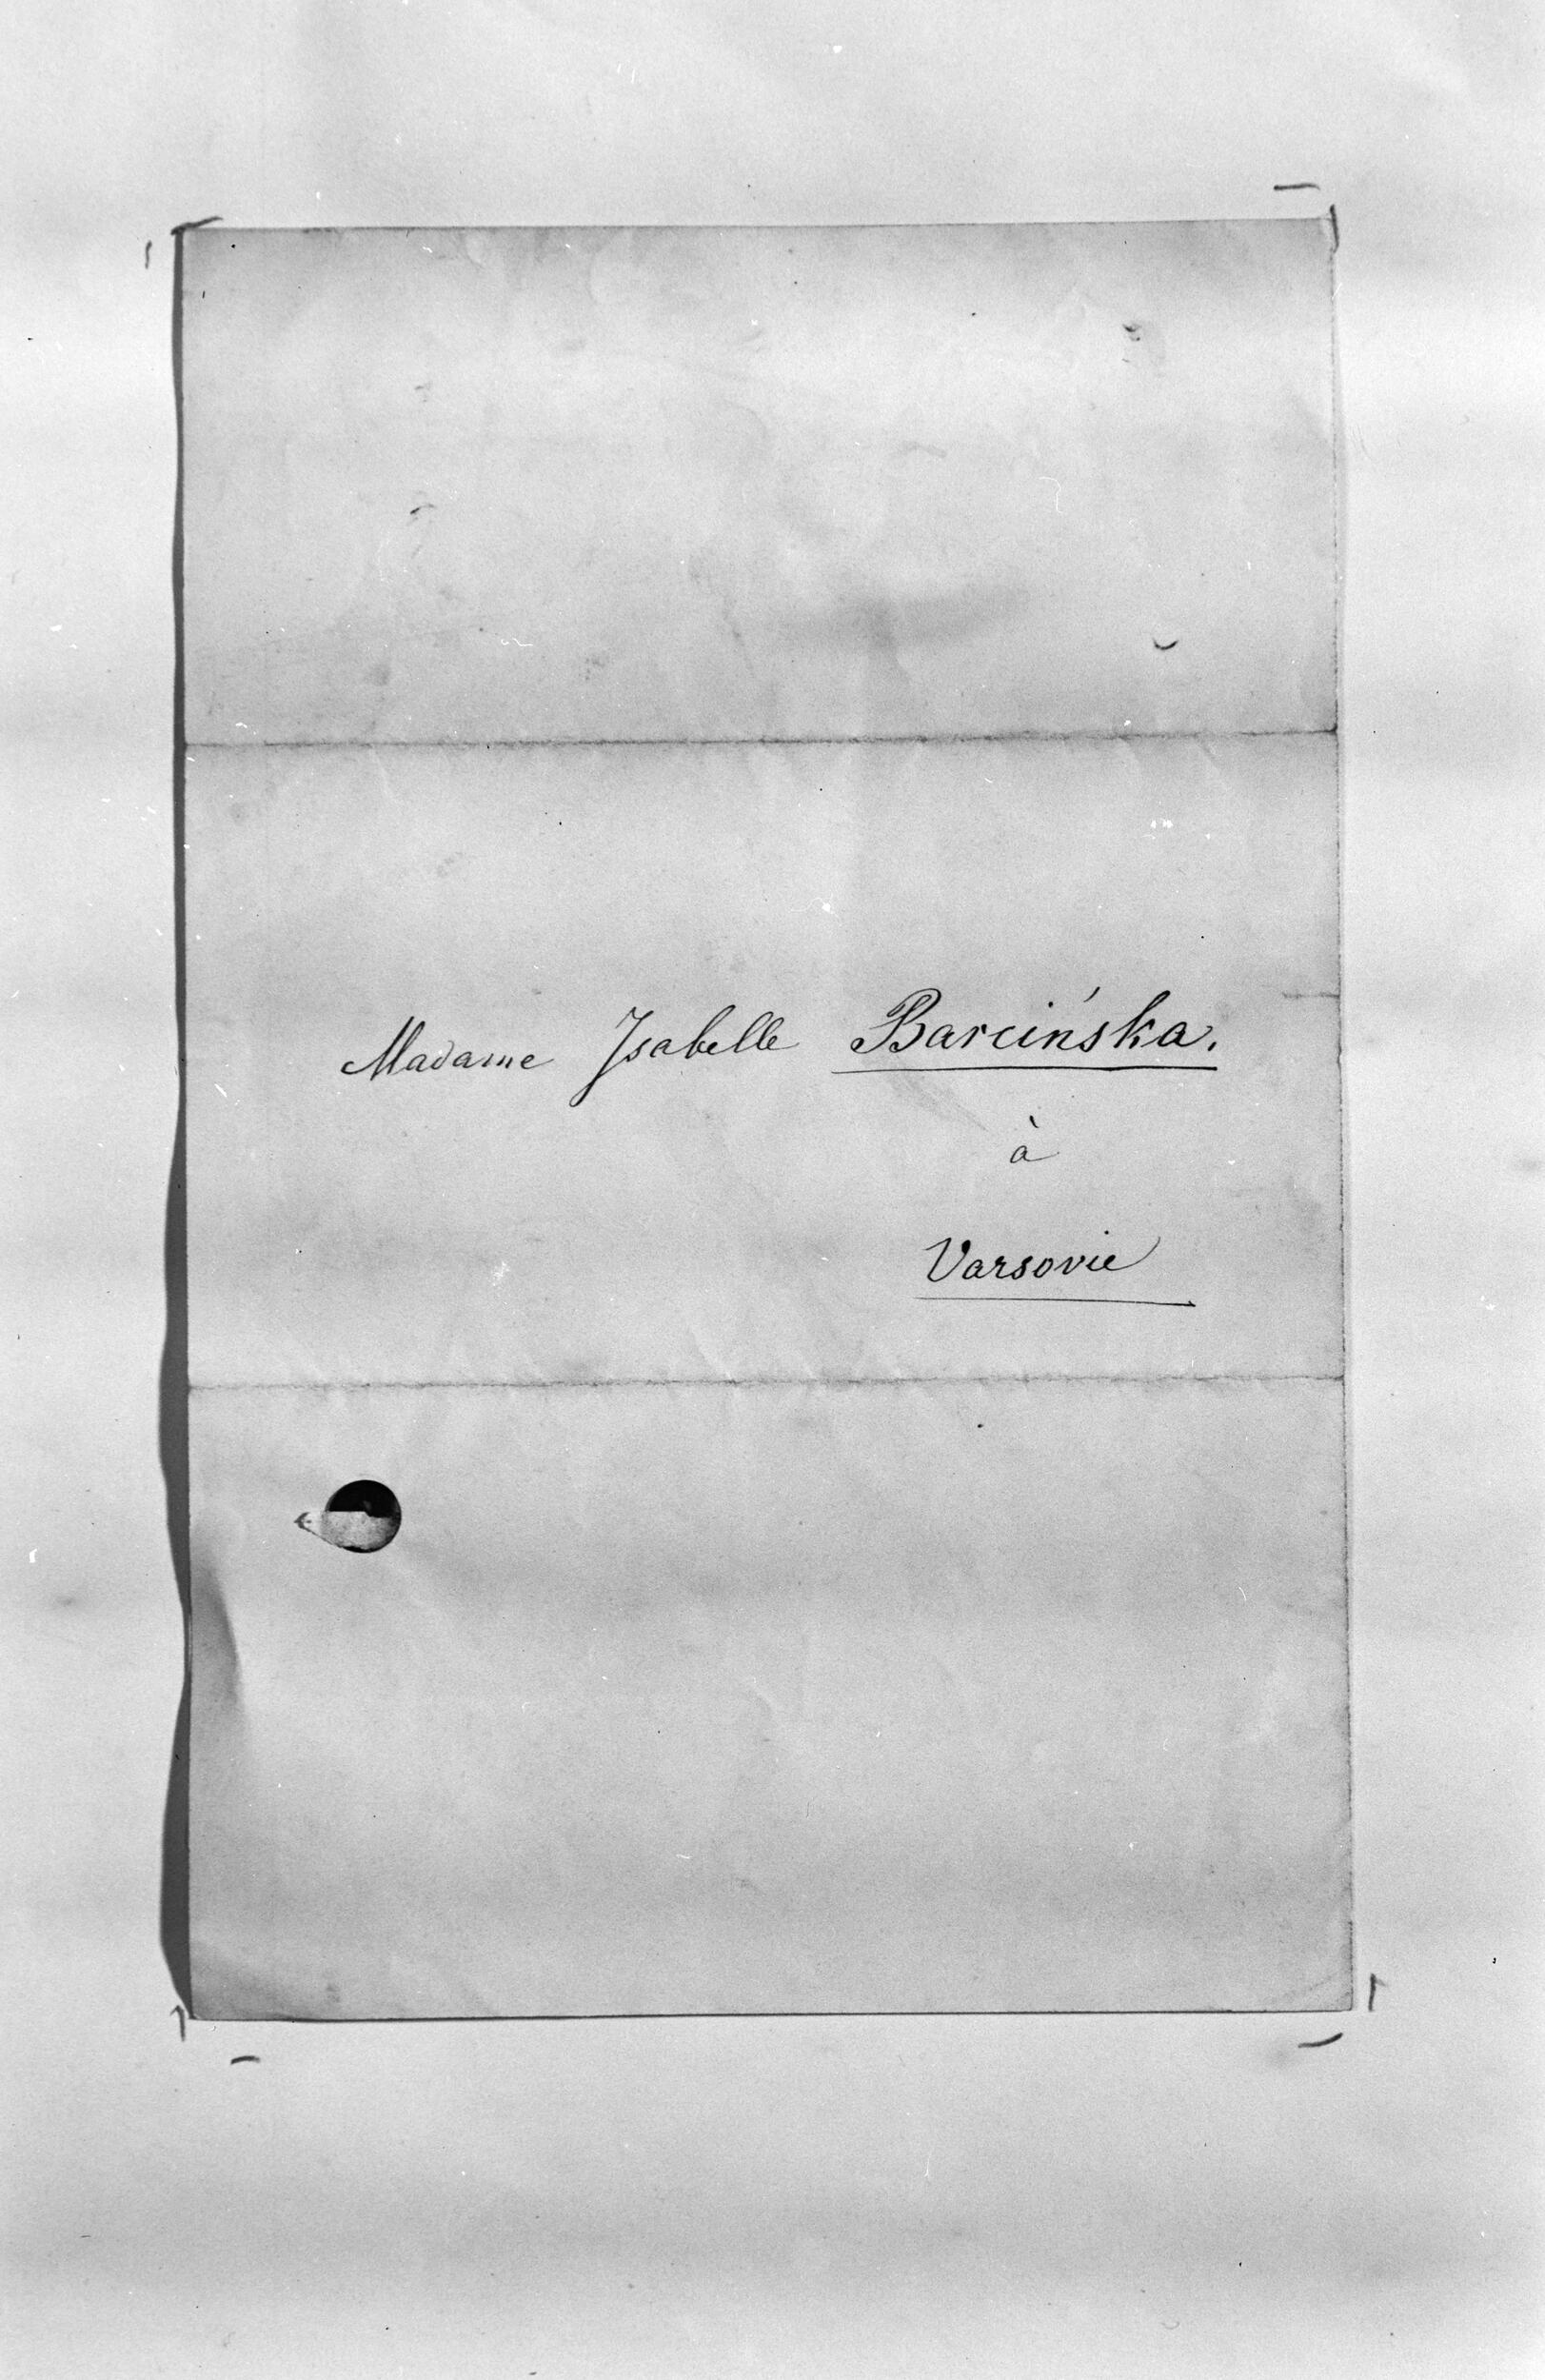 Madame Isabelle Barcińska.
à
Varsovie